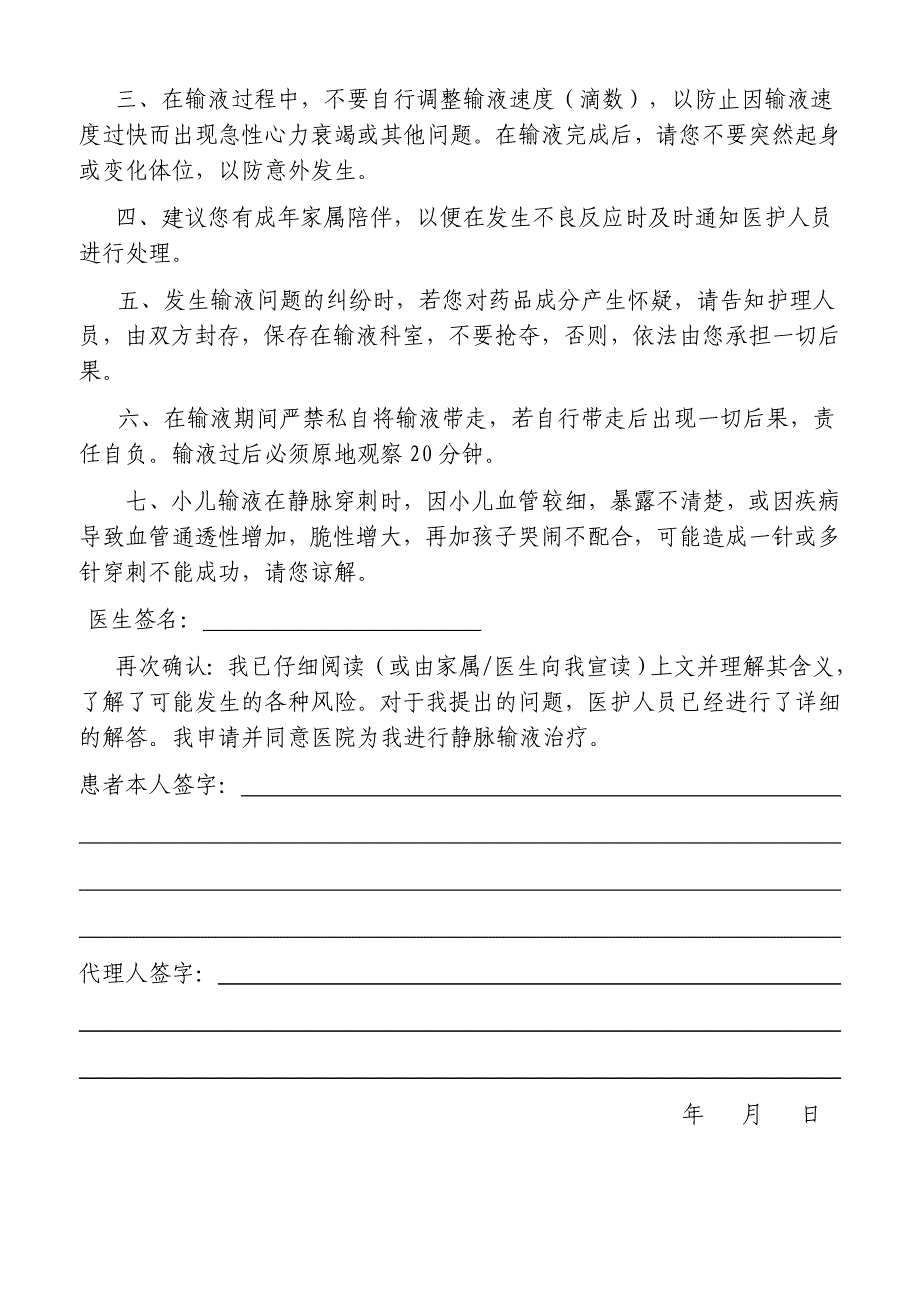 三、在输液过程中，不要自行调整输液速度（滴数），以防止因输液速
度过快而出现急性心力衰竭或其他问题。在输液完成后，请您不要突然起身
或变化体位，以防意外发生。
四、建议您有成年家属陪伴，以便在发生不良反应时及时通知医护人员
进行处理。
五、发生输液问题的纠纷时，若您对药品成分产生怀疑，请告知护理人
员，由双方封存，保存在输液科室，不要抢夺，否则，依法由您承担一切后
果。
六、在输液期间严禁私自将输液带走，若自行带走后出现一切后果，责
任自负。输液过后必须原地观察20分钟。
七、小儿输液在静脉穿刺时，因小儿血管较细，暴露不清楚，或因疾病
导致血管通透性增加，脆性增大，再加孩子哭闹不配合，可能造成一针或多
针穿刺不能成功，请您谅解。
医生签名：
再次确认：我已仔细阅读（或由家属/医生向我宣读）上文并理解其含义，
了解了可能发生的各种风险。对于我提出的问题，医护人员已经进行了详细
的解答。我申请并同意医院为我进行静脉输液治疗。
患者本人签字：
代理人签字：
年 月 日